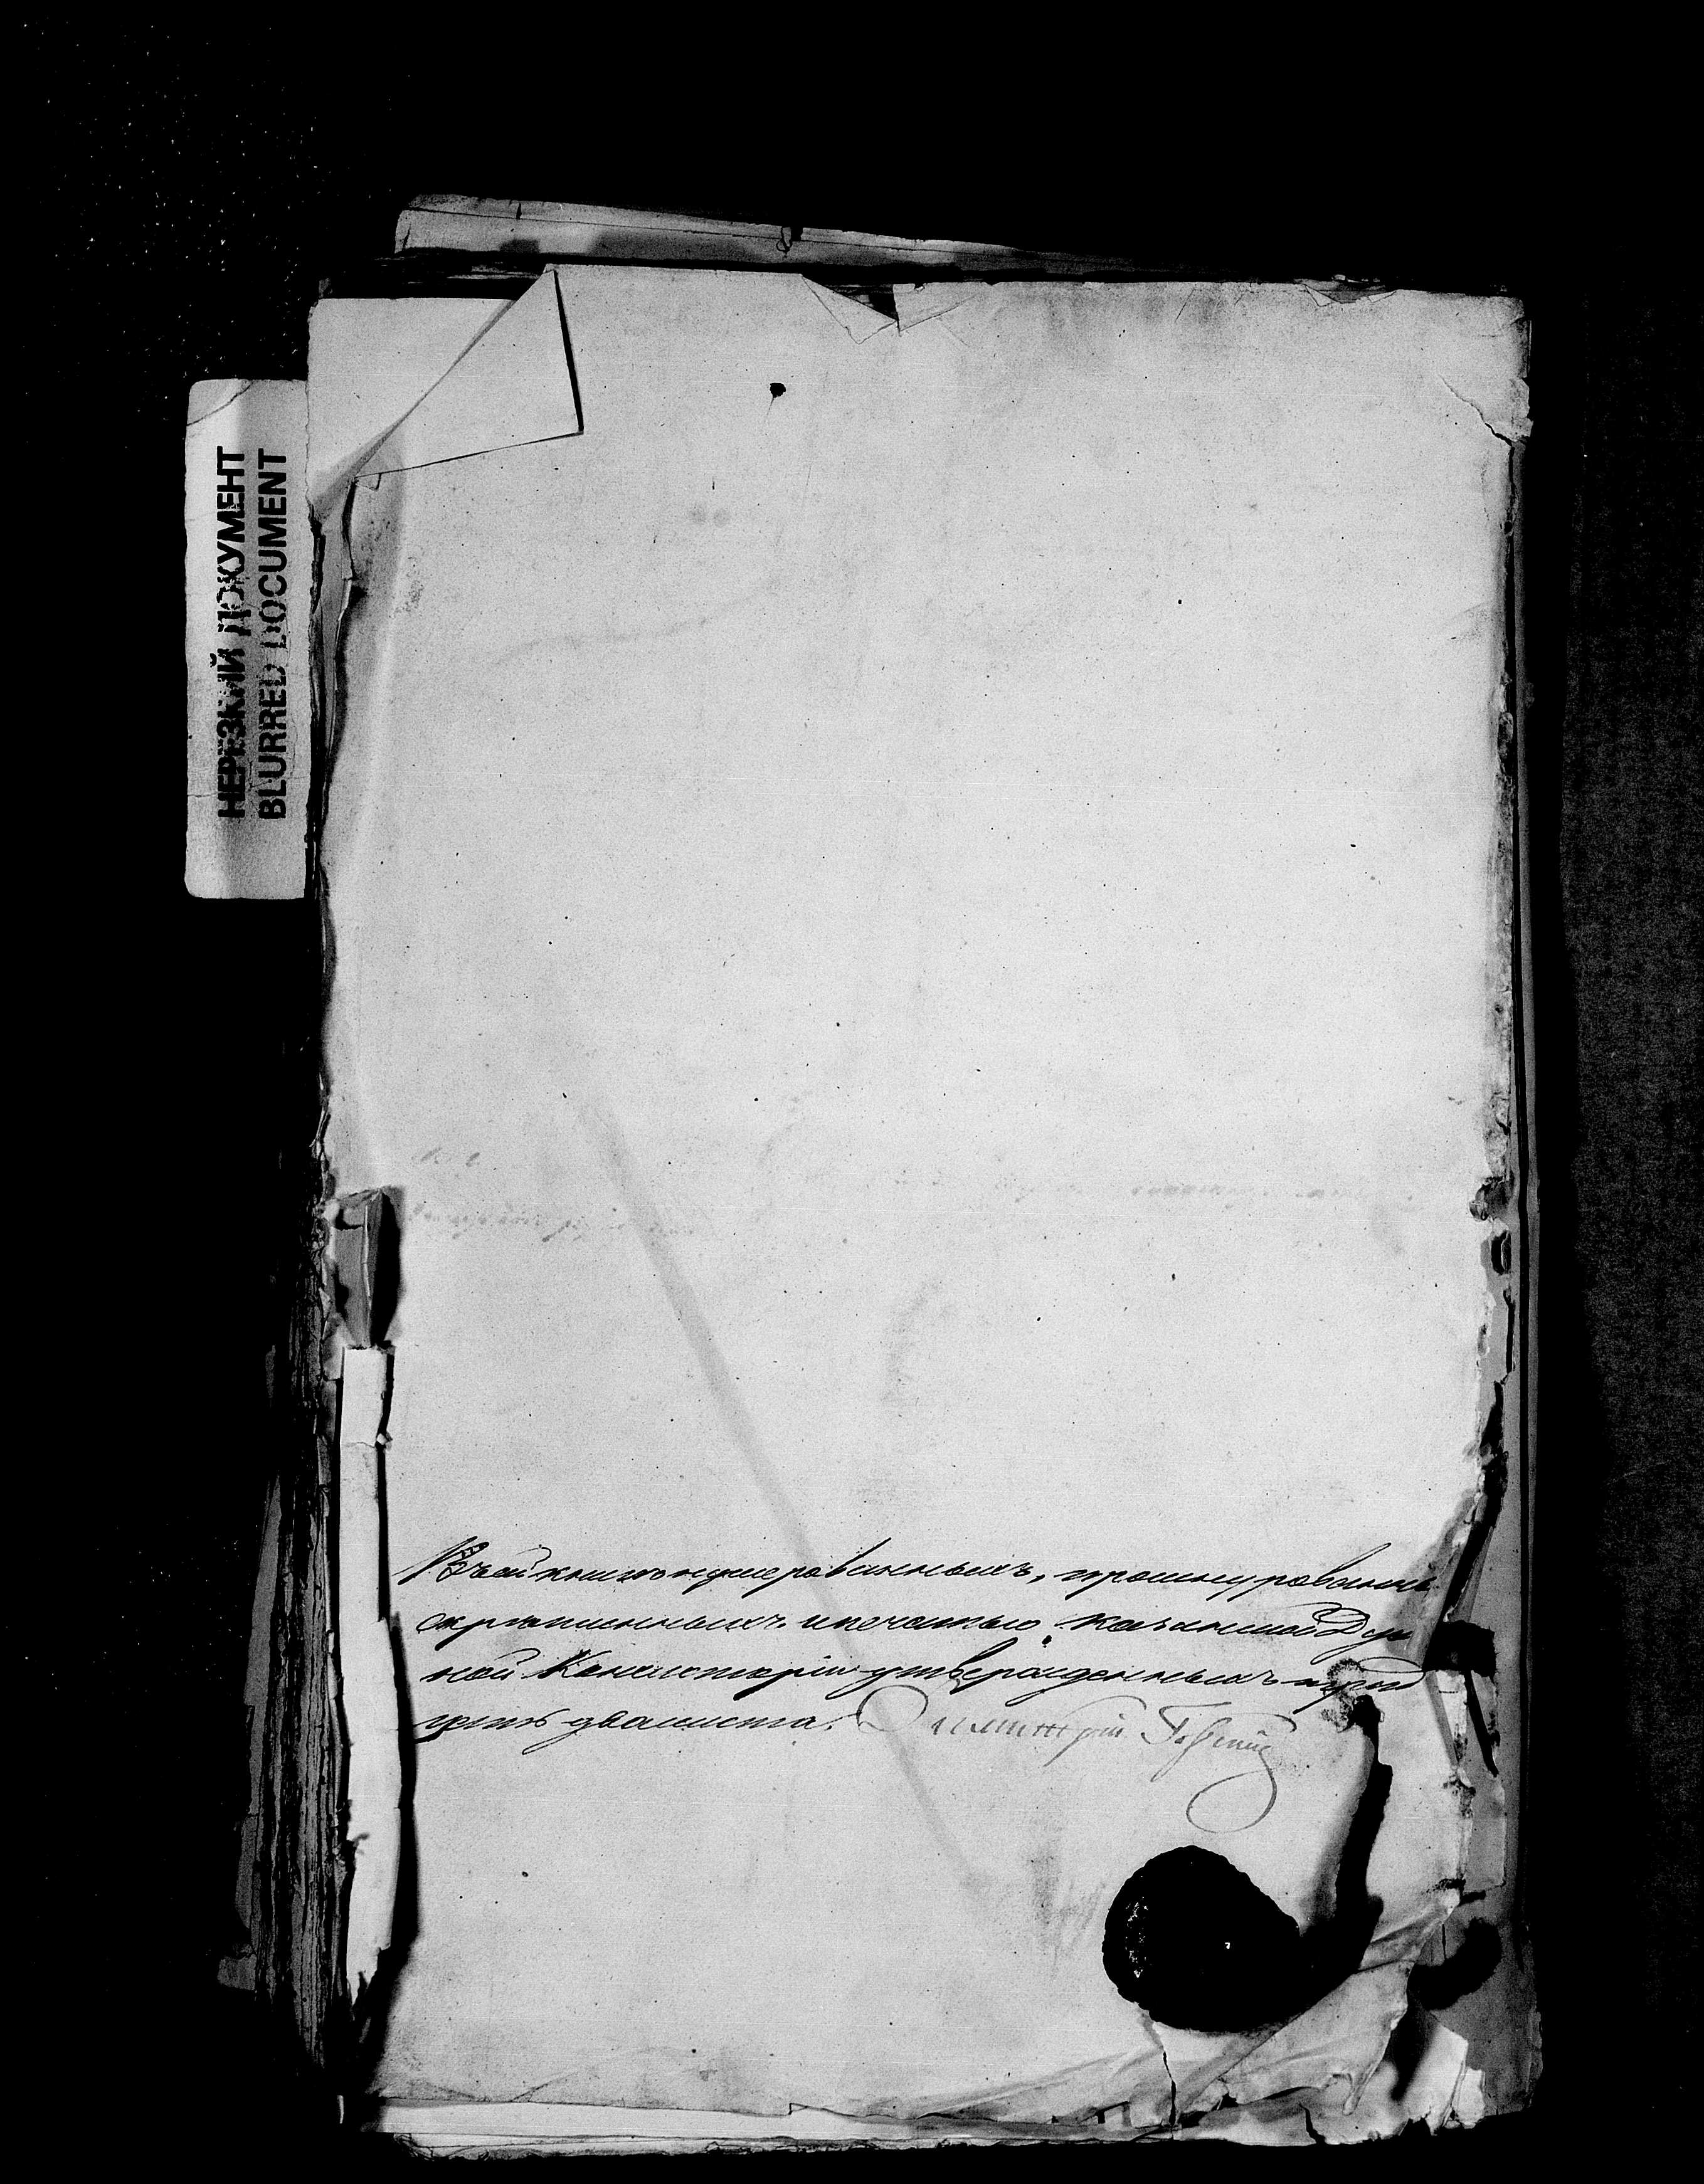 НЕРЕЗКИЙ ДОКУМЕНТ
BLURRED DOCUMENT
Въ сей книгѣ нумерованныхъ, прошнурованны
скрѣпленныхъ и печатью Казанской Дух
ной Консисторіи утвержденныхъ
два листа.